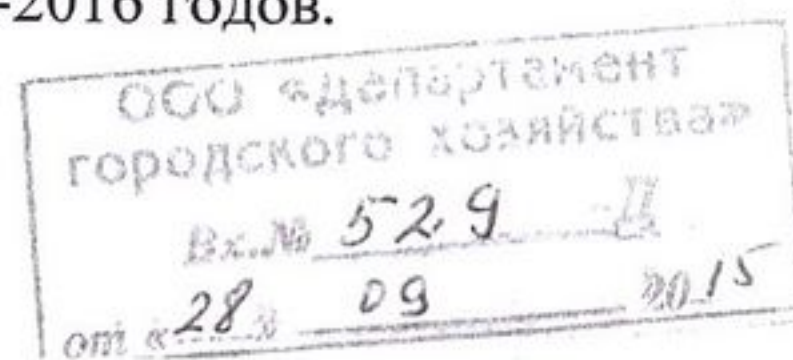 -2016 годов.
ООО «Департамент
городского хозяйства»
Вх.№ 529 Д
от «28» 09 2015